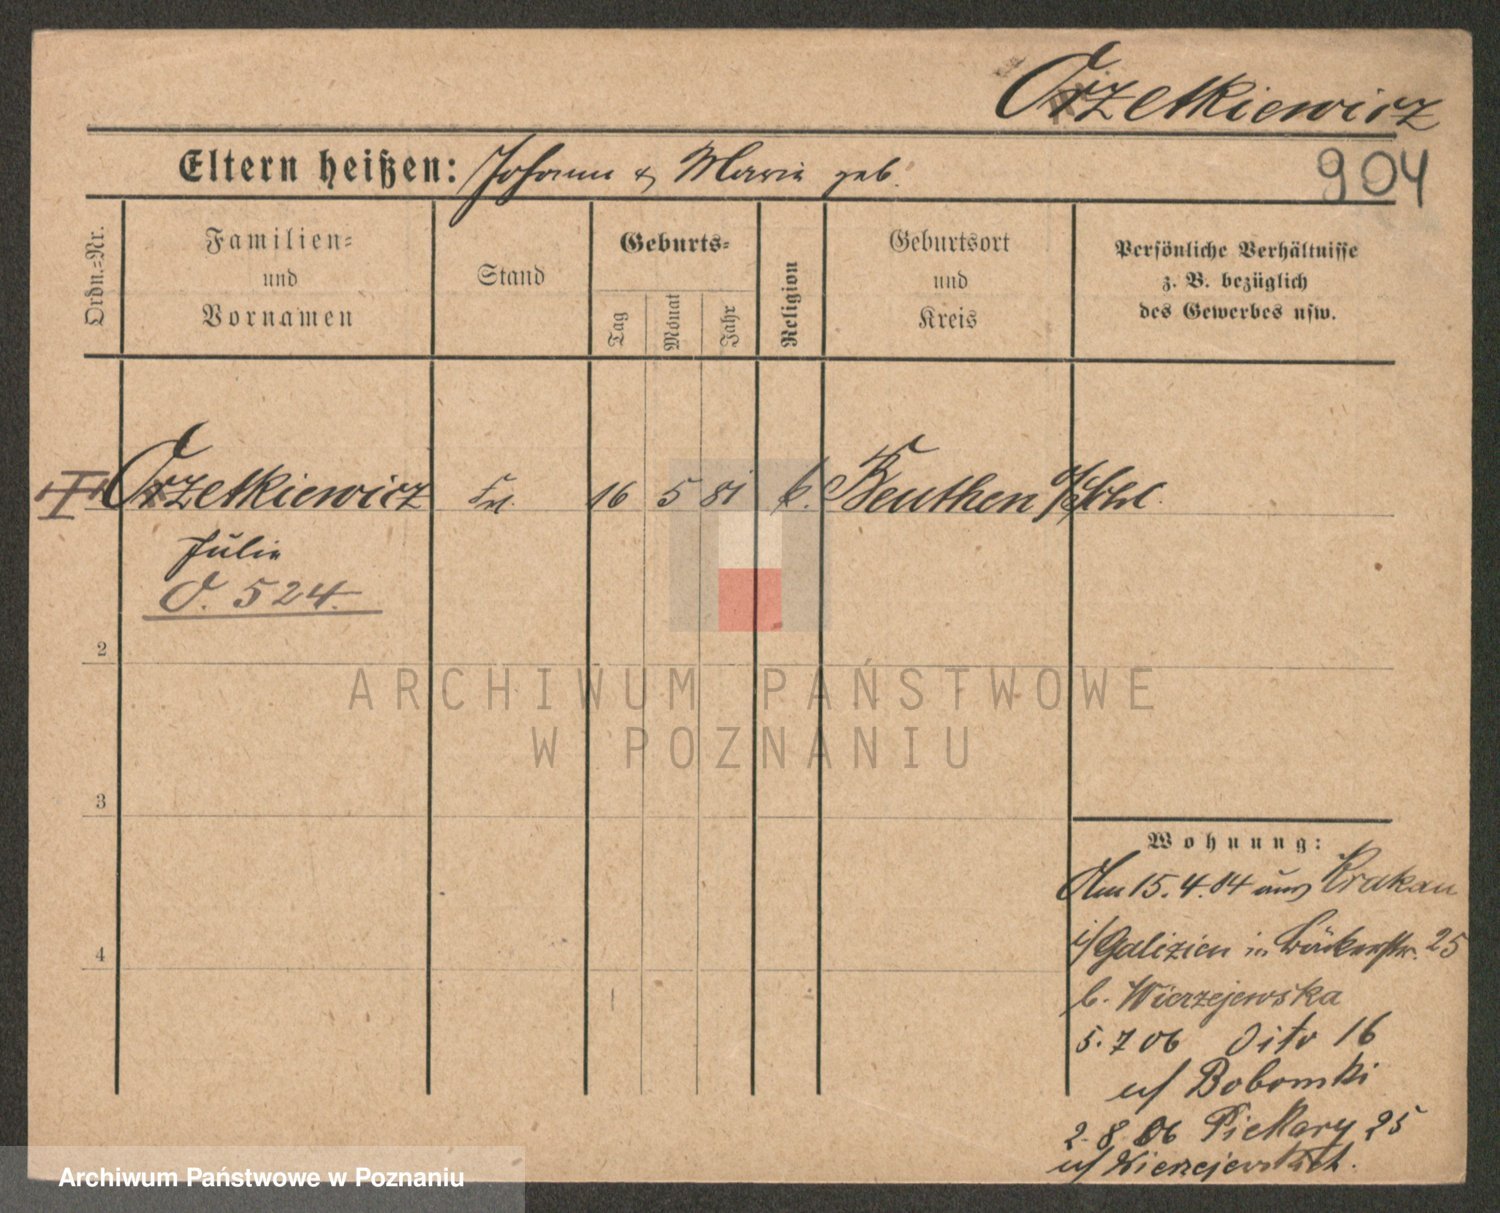 Orzetkiewicz
Eltern heißen: Johann & Marie geb.
904
Ordn.=Nr.
Familien=
und
Vornamen
Stand
Geburts=
Tag
Monat
Jahr
Religion
Geburtsort
und
Kreis
Persönliche Verhältnisse
z. B. bezüglich
des Gewerbes usw.
Orzetkiewicz Frl. 16 5 81 k. Beuthen o/Schl.
Julie
O. 524.
2
3
4
Wohnung:
Am 15.4.04 aus Krakau
i/Galizien in Bäckerstr. 25
b. Wierzejewska
5.7 06 Dito 16
2.8.06 Piekary 25
ARCHIWUM PAŃSTWOWE
W POZNANIU
Archiwum Państwowe w Poznaniu